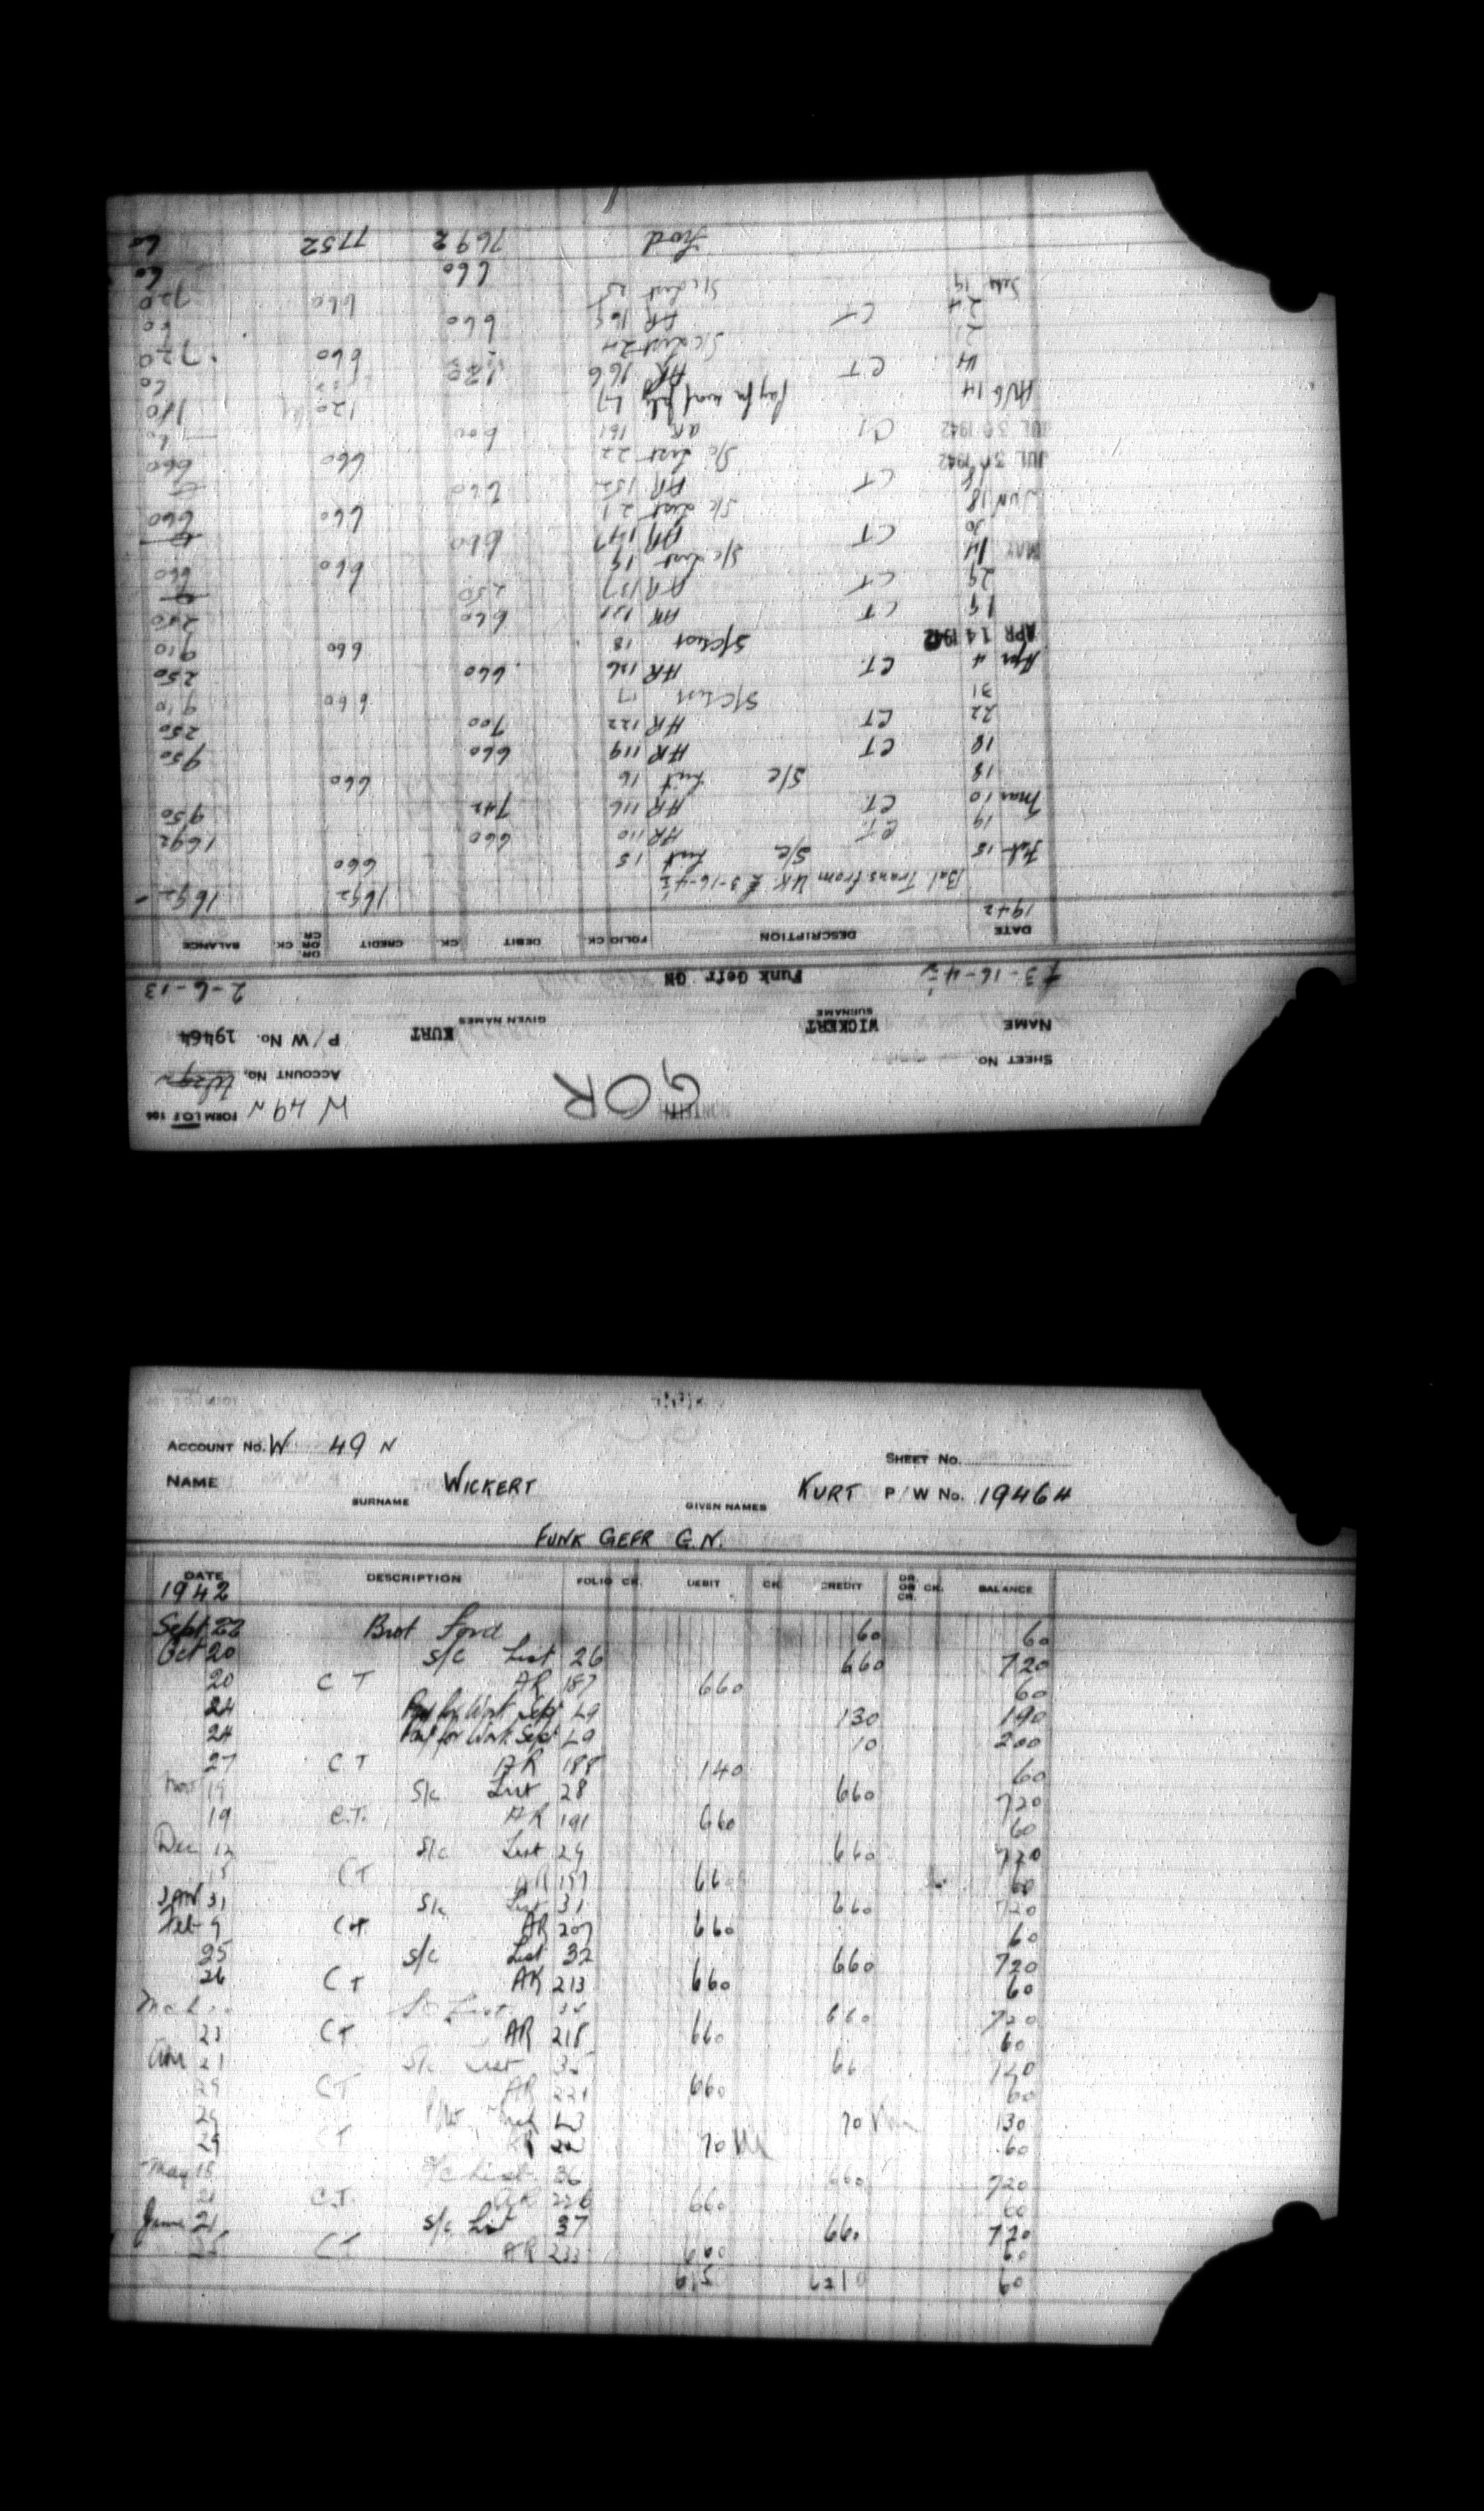 W 49 N FORM LOF 166
GOR
MONTEITH
ACCOUNT No.
SHEET No.
NAME WICKERT KURT P/W No. 19464
SURNAME GIVEN NAMES
£3-16-4½ Funk Gefr GN 2-6-13
DATE DESCRIPTION FOLIO CK. DEBIT CK. CREDIT DR. OR CR. CK. BALANCE
1942
Bal. Trans from U.K. £3-16-4½ 1692 1692
Feb 15 S/C List 15 660
19 C.T. AR 110 660 1692
Mar 10 C.T. AR 116 742 950
18 S/C List 16 660
18 CT AR 119 660 950
22 CT AR 122 700 250
31 S/C List 17 660 910
Apr 4 C.T. AR 126 660 250
APR 14 1942 S/C List 18 660 910
19 CT AR 131 660 250
29 CT AR 137 250 0
MAY 14 S/C List 19 660 660
30 CT AR 147 660 0
JUN 18 S/C List 21 660 660
CT AR 152 660
JUL 30 1942 S/C List 22 660 660
JUL 30 1942 CT AR 161 600 60
AUG 14 Pay for work July L7 120 180
14 CT AR 166 120 60
S/C List 24 660 720
24 CT AR 168 660 60
Sep 19 S/C List 25 660 720
660 60
Fwd 7692 7752 60
ACCOUNT No. W 49 N
SHEET No.
NAME WICKERT KURT P/W No. 19464
SURNAME GIVEN NAMES
FUNK GEFR G.N.
DATE DESCRIPTION FOLIO CK. DEBIT CK. CREDIT DR. OR CR. CK. BALANCE
1942
Sept 22 Brot Ford 60 60
Oct 20 S/C List 26 660 720
20 C T AR 187 660 60
24 Pay for Work Sept L9 130 190
24 Pay for Work Sept L9 10 200
27 C T AR 188 140 60
Nov 19 S/C List 28 660 720
19 C.T. AR 191 660 60
Dec 12 S/C List 29 660 720
15 CT AR 197 660 60
JAN 31 S/C List 31 660 720
Feb 9 CT AR 207 660 60
25 S/C List 32 660 720
26 C T AR 213 660 60
Mch S/C List 660 720
23 CT AR 218 660 60
Apr 21 S/C List 35 66 720
29 CT AR 221 660 60
29 L3 70 130
29 CT AR 70 60
May 18 S/C List 36 660 720
21 C.T. AR 226 660 60
June 21 S/C List 37 660 720
25 CT AR 233 660 60
6150 6210 60